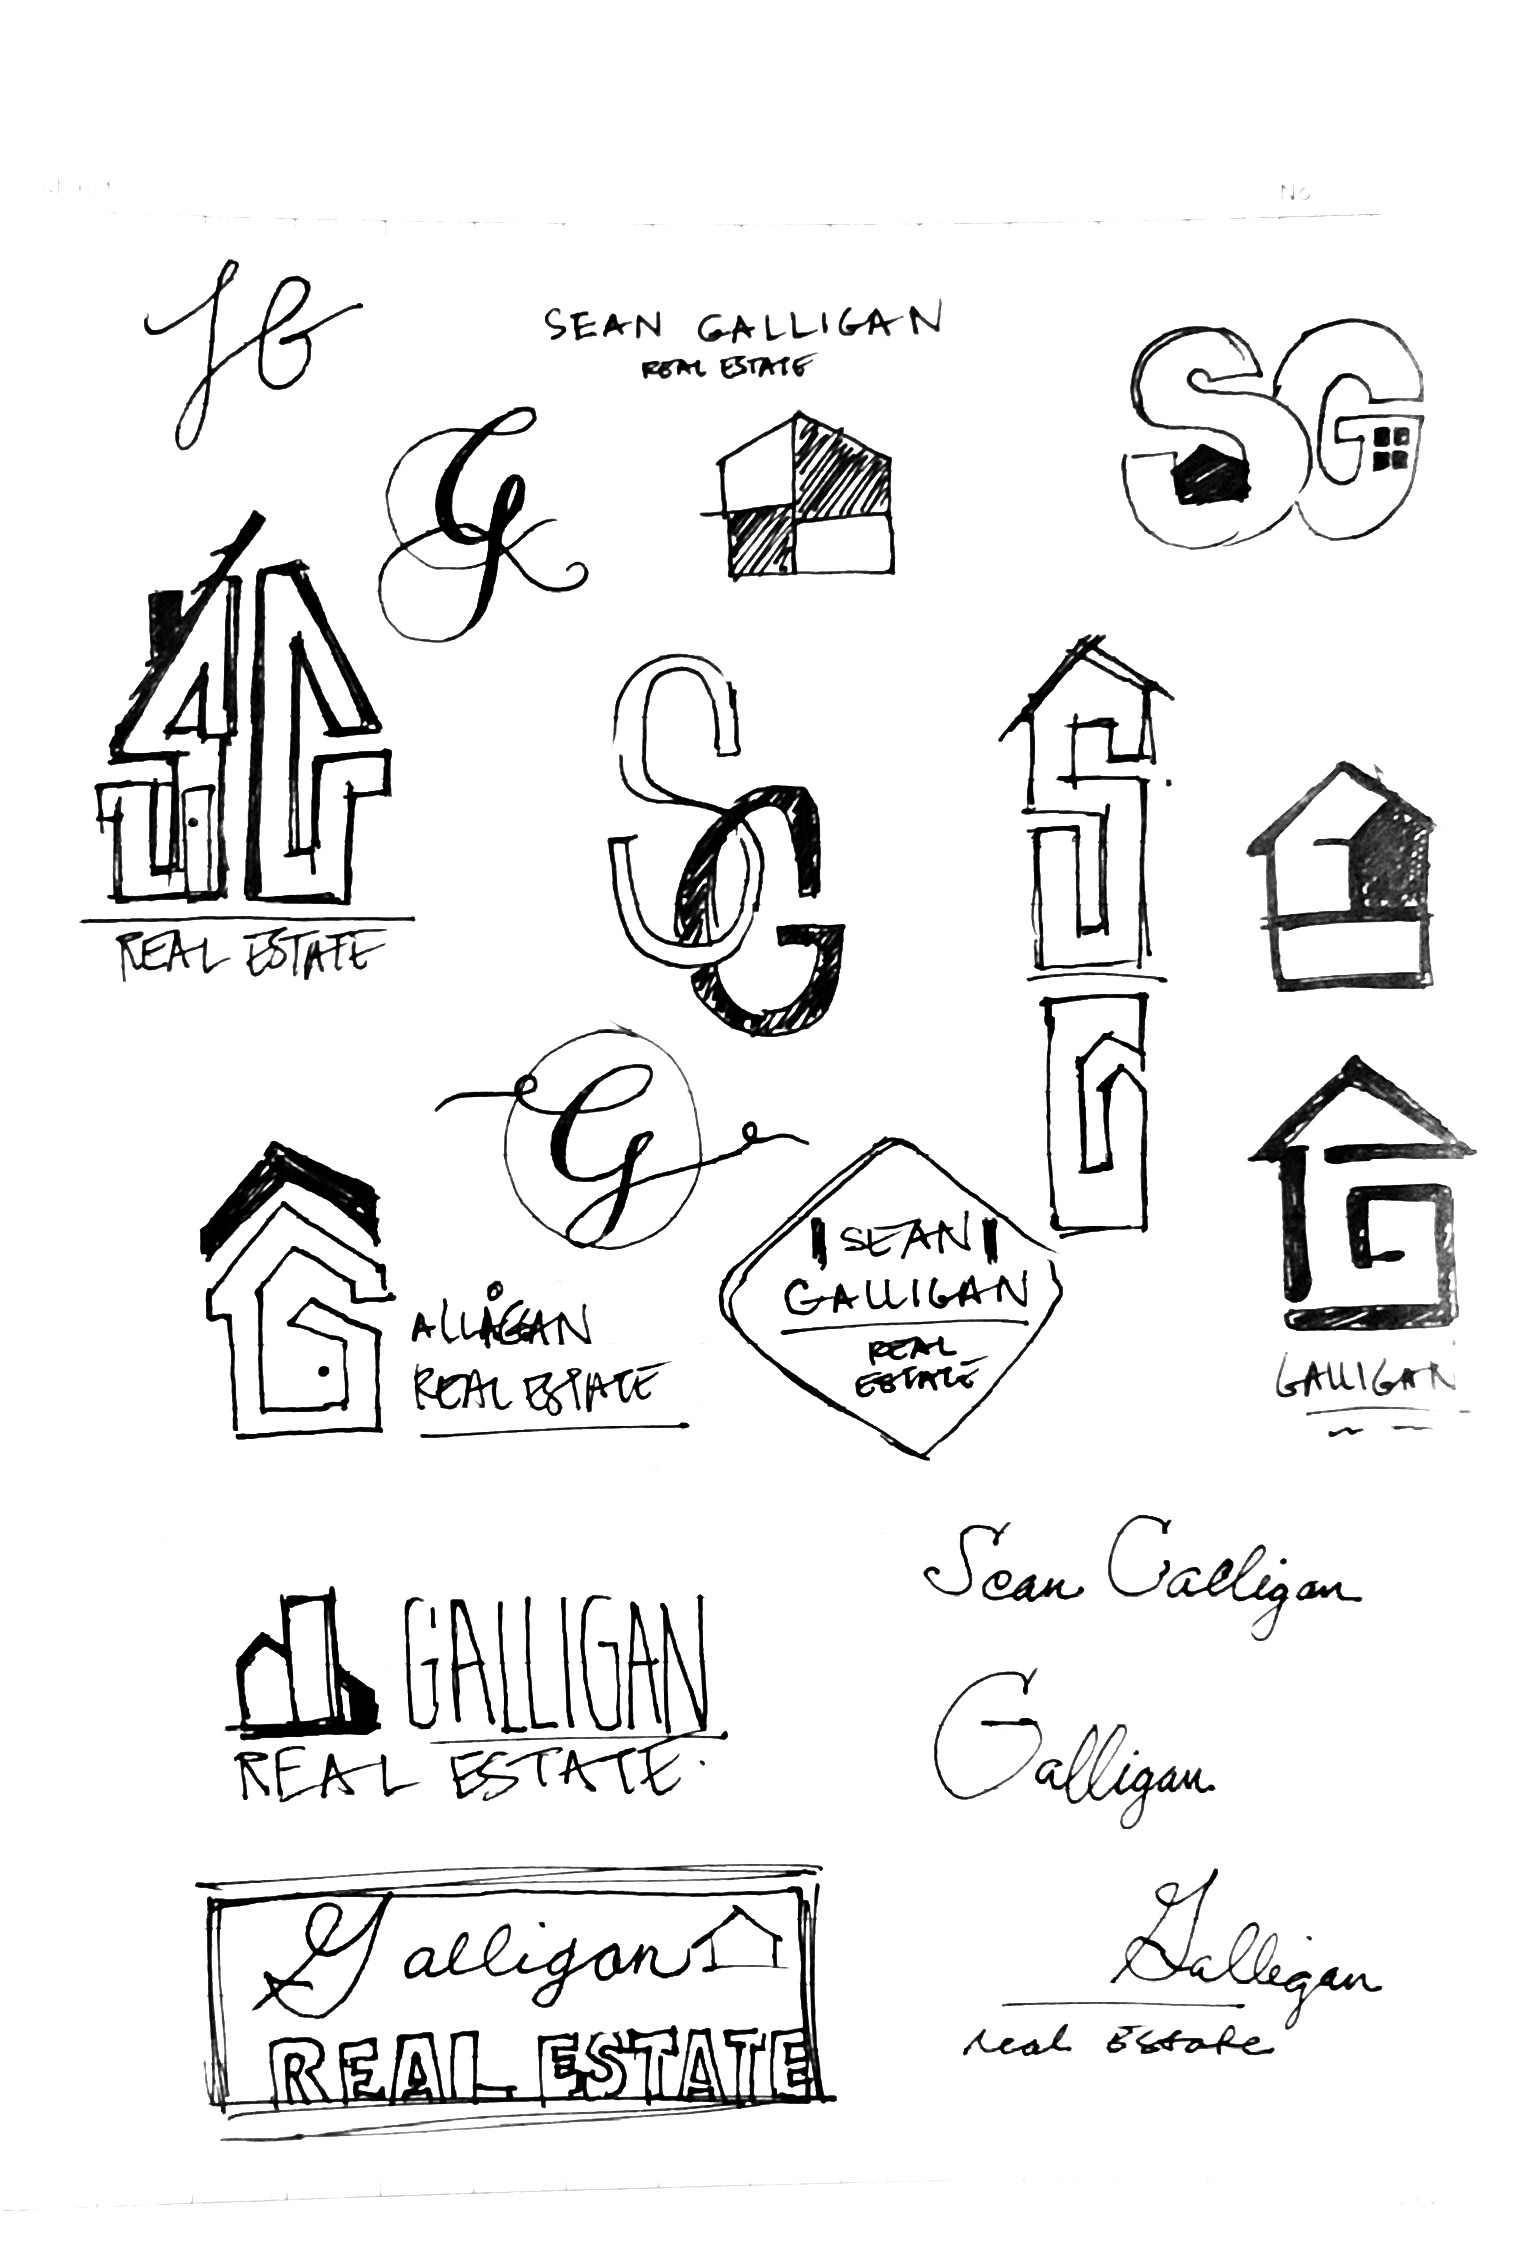 No
SG
SEAN GALLIGAN
REAL ESTATE
SG
G
SG
REAL ESTATE
SG
SG
G
G
G
ALLIGAN
REAL ESTATE
SEAN
GALLIGAN
REAL
ESTATE
G
GALLIGAN
Sean Galligan
GALLIGAN
REAL ESTATE.
Galligan
Galligan
REAL ESTATE
Galligan
real Estate